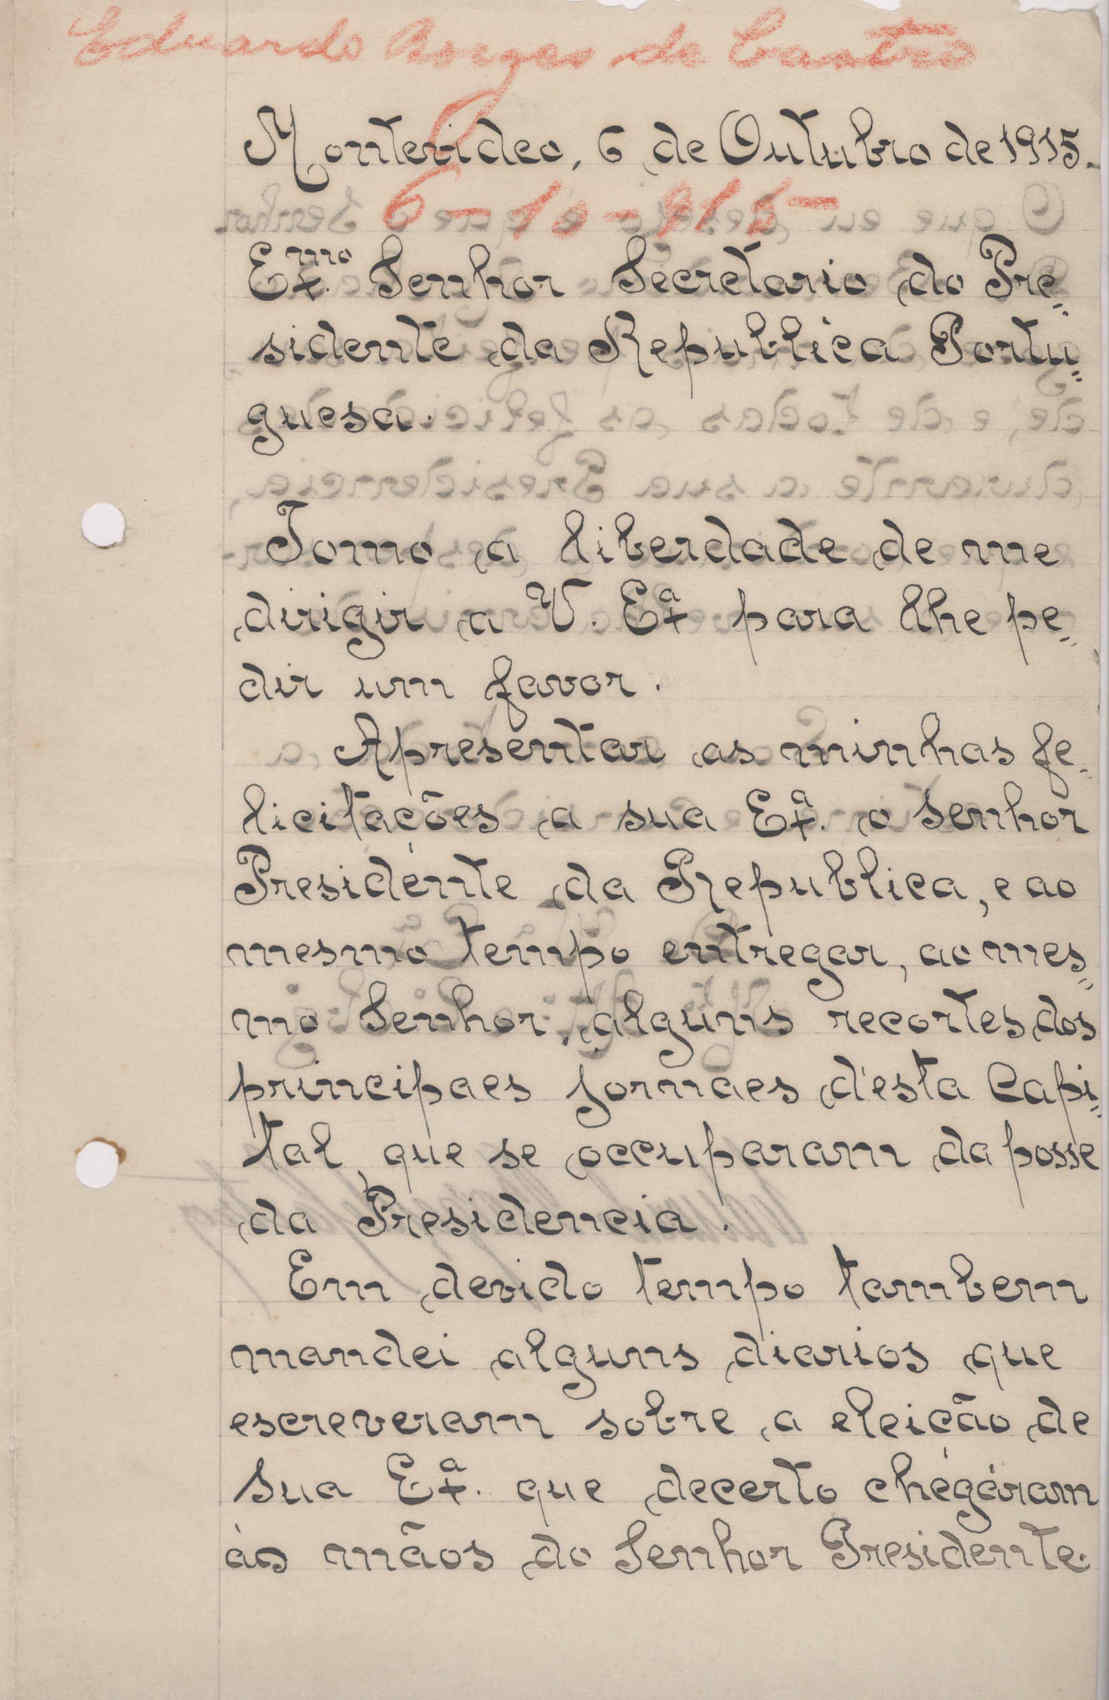 Eduardo Borges de Castro
Montevideo, 6 de Outubro de 1915.
6-10-915-
Exmo. Senhor Secretario do Pre=
sidente da Republica Portu=
guesa.
Tomo a liberdade de me
dirigir a V. Exª para lhe pe=
dir um favor.
Apresentar as minhas fe=
licitações a sua Exª. o Senhor
Presidente da Republica, e ao
mesmo tempo entregar, ao mes=
mo Senhor, alguns recortes dos
principaes jornaes d'esta Capi=
tal, que se occuparam da posse
da Presidencia.
Em devido tempo tambem
mandei alguns diarios que
escreveram sobre a eleição de
Sua Exª. que decerto chégáram
ás mãos do Senhor Presidente.